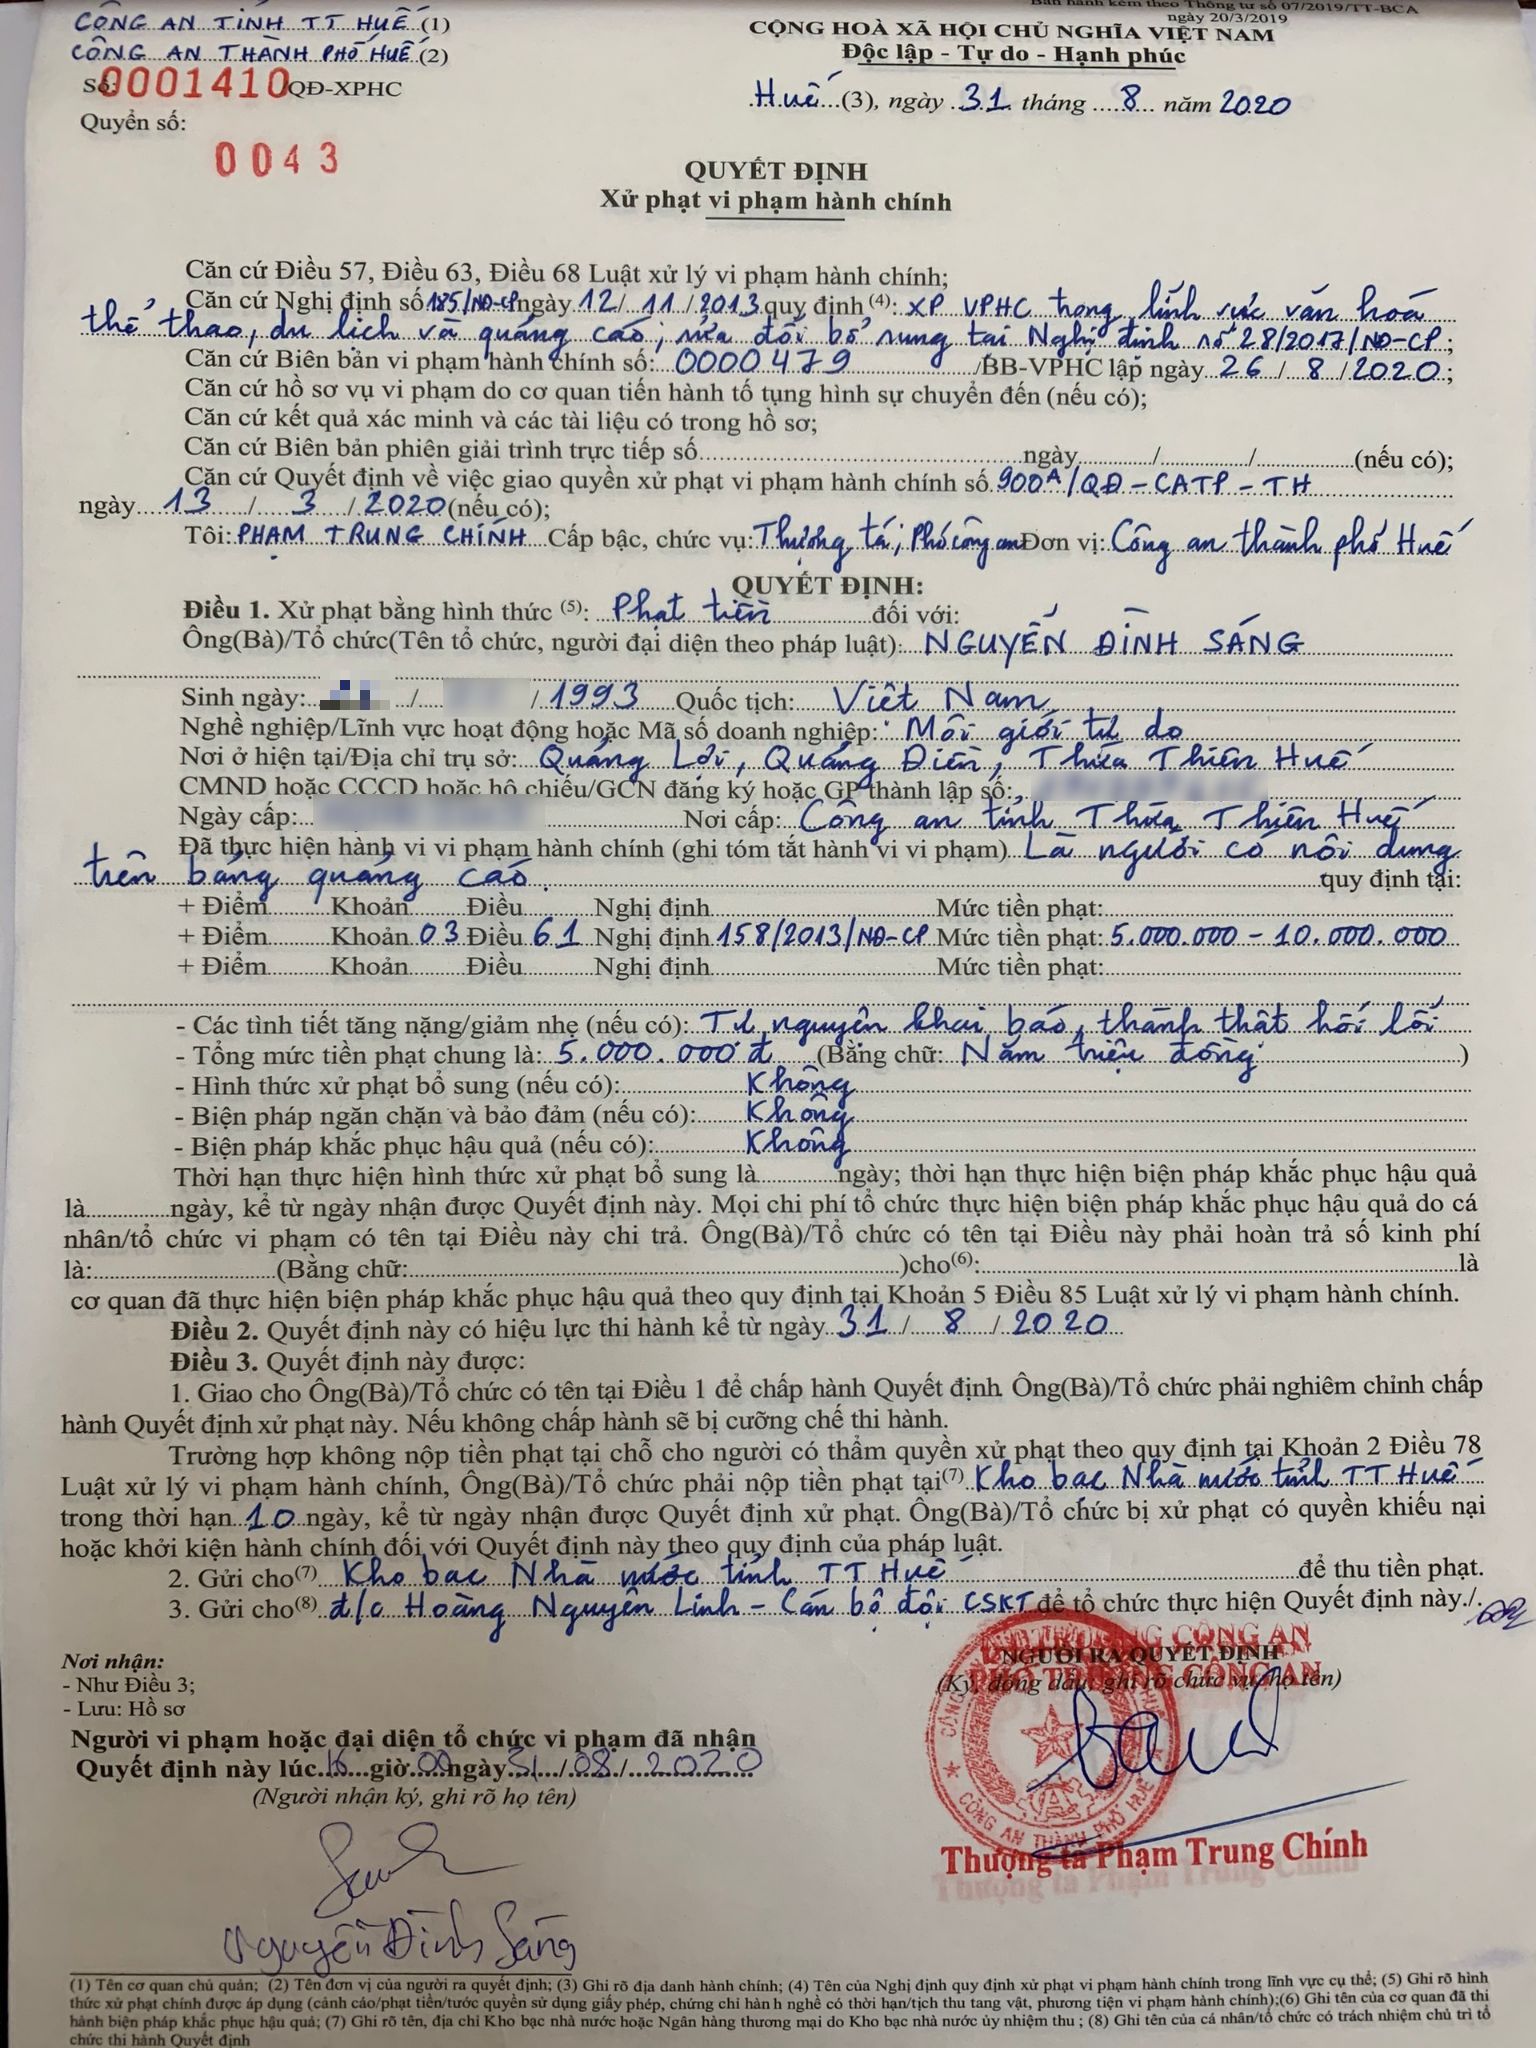 Ban hành kèm theo Thông tư số 07/2019/TT-BCA
ngày 20/3/2019
CÔNG AN TỈNH TT HUẾ (1)
CÔNG AN THÀNH PHỐ HUẾ (2)
Số: 0001410/QĐ-XPHC
Quyển số:
0043
CỘNG HOÀ XÃ HỘI CHỦ NGHĨA VIỆT NAM
Độc lập - Tự do - Hạnh phúc
Huế (3), ngày 31 tháng 8 năm 2020
QUYẾT ĐỊNH
Xử phạt vi phạm hành chính
Căn cứ Điều 57, Điều 63, Điều 68 Luật xử lý vi phạm hành chính;
Căn cứ Nghị định số 185/NĐ-CP ngày 12/11/2013 quy định (4): XP VPHC trong lĩnh vực văn hoá
thể thao, du lịch và quảng cáo; sửa đổi bổ sung tại Nghị định số 28/2017/NĐ-CP;
Căn cứ Biên bản vi phạm hành chính số: 0000479 /BB-VPHC lập ngày 26/8/2020;
Căn cứ hồ sơ vụ vi phạm do cơ quan tiến hành tố tụng hình sự chuyển đến (nếu có);
Căn cứ kết quả xác minh và các tài liệu có trong hồ sơ;
Căn cứ Biên bản phiên giải trình trực tiếp số.......ngày....../....../......(nếu có);
Căn cứ Quyết định về việc giao quyền xử phạt vi phạm hành chính số 900A/QĐ-CATP-TH
ngày 13/3/2020 (nếu có);
Tôi: PHẠM TRUNG CHÍNH Cấp bậc, chức vụ: Thượng tá; Phó công an Đơn vị: Công an thành phố Huế
QUYẾT ĐỊNH:
Điều 1. Xử phạt bằng hình thức (5): Phạt tiền đối với:
Ông(Bà)/Tổ chức(Tên tổ chức, người đại diện theo pháp luật): NGUYỄN ĐÌNH SÁNG
Sinh ngày: / /1993 Quốc tịch: Việt Nam
Nghề nghiệp/Lĩnh vực hoạt động hoặc Mã số doanh nghiệp: Môi giới tự do
Nơi ở hiện tại/Địa chỉ trụ sở: Quảng Lợi, Quảng Điền, Thừa Thiên Huế
CMND hoặc CCCD hoặc hộ chiếu/GCN đăng ký hoặc GP thành lập số:
Ngày cấp: Nơi cấp: Công an tỉnh Thừa Thiên Huế
Đã thực hiện hành vi vi phạm hành chính (ghi tóm tắt hành vi vi phạm) Là người có nội dung
trên bảng quảng cáo. quy định tại:
+ Điểm...... Khoản...... Điều...... Nghị định...... Mức tiền phạt:
+ Điểm...... Khoản 03 Điều 61 Nghị định 158/2013/NĐ-CP Mức tiền phạt: 5.000.000 - 10.000.000
+ Điểm...... Khoản...... Điều...... Nghị định...... Mức tiền phạt:
- Các tình tiết tăng nặng/giảm nhẹ (nếu có): Tự nguyện khai báo, thành thật hối lỗi
- Tổng mức tiền phạt chung là: 5.000.000 đ (Bằng chữ: Năm triệu đồng)
- Hình thức xử phạt bổ sung (nếu có): Không
- Biện pháp ngăn chặn và bảo đảm (nếu có): Không
- Biện pháp khắc phục hậu quả (nếu có): Không
Thời hạn thực hiện hình thức xử phạt bổ sung là......ngày; thời hạn thực hiện biện pháp khắc phục hậu quả
là......ngày, kể từ ngày nhận được Quyết định này. Mọi chi phí tổ chức thực hiện biện pháp khắc phục hậu quả do cá
nhân/tổ chức vi phạm có tên tại Điều này chi trả. Ông(Bà)/Tổ chức có tên tại Điều này phải hoàn trả số kinh phí
là:......(Bằng chữ:......)cho(6):......là
cơ quan đã thực hiện biện pháp khắc phục hậu quả theo quy định tại Khoản 5 Điều 85 Luật xử lý vi phạm hành chính.
Điều 2. Quyết định này có hiệu lực thi hành kể từ ngày 31/8/2020
Điều 3. Quyết định này được:
1. Giao cho Ông(Bà)/Tổ chức có tên tại Điều 1 để chấp hành Quyết định. Ông(Bà)/Tổ chức phải nghiêm chỉnh chấp
hành Quyết định xử phạt này. Nếu không chấp hành sẽ bị cưỡng chế thi hành.
Trường hợp không nộp tiền phạt tại chỗ cho người có thẩm quyền xử phạt theo quy định tại Khoản 2 Điều 78
Luật xử lý vi phạm hành chính, Ông(Bà)/Tổ chức phải nộp tiền phạt tại(7) Kho bạc Nhà nước tỉnh TT Huế
trong thời hạn 10 ngày, kể từ ngày nhận được Quyết định xử phạt. Ông(Bà)/Tổ chức bị xử phạt có quyền khiếu nại
hoặc khởi kiện hành chính đối với Quyết định này theo quy định của pháp luật.
2. Gửi cho(7) Kho bạc Nhà nước tỉnh TT Huế để thu tiền phạt.
3. Gửi cho(8) đ/c Hoàng Nguyên Linh - Cán bộ đội CSKT để tổ chức thực hiện Quyết định này./.
Nơi nhận:
- Như Điều 3;
- Lưu: Hồ sơ
Người vi phạm hoặc đại diện tổ chức vi phạm đã nhận
Quyết định này lúc 16 giờ 00 ngày 31/08/2020
(Người nhận ký, ghi rõ họ tên)
Nguyễn Đình Sáng
NGƯỜI RA QUYẾT ĐỊNH
PHÓ TRƯỞNG CÔNG AN
(Ký, đóng dấu, ghi rõ chức vụ, họ tên)
CÔNG AN THÀNH PHỐ HUẾ
Thượng tá Phạm Trung Chính
(1) Tên cơ quan chủ quản; (2) Tên đơn vị của người ra quyết định; (3) Ghi rõ địa danh hành chính; (4) Tên của Nghị định quy định xử phạt vi phạm hành chính trong lĩnh vực cụ thể; (5) Ghi rõ hình
thức xử phạt chính được áp dụng (cảnh cáo/phạt tiền/tước quyền sử dụng giấy phép, chứng chỉ hành nghề có thời hạn/tịch thu tang vật, phương tiện vi phạm hành chính);(6) Ghi tên của cơ quan đã thi
hành biện pháp khắc phục hậu quả; (7) Ghi rõ tên, địa chỉ Kho bạc nhà nước hoặc Ngân hàng thương mại do Kho bạc nhà nước ủy nhiệm thu ; (8) Ghi tên của cá nhân/tổ chức có trách nhiệm chủ trì tổ
chức thi hành Quyết định